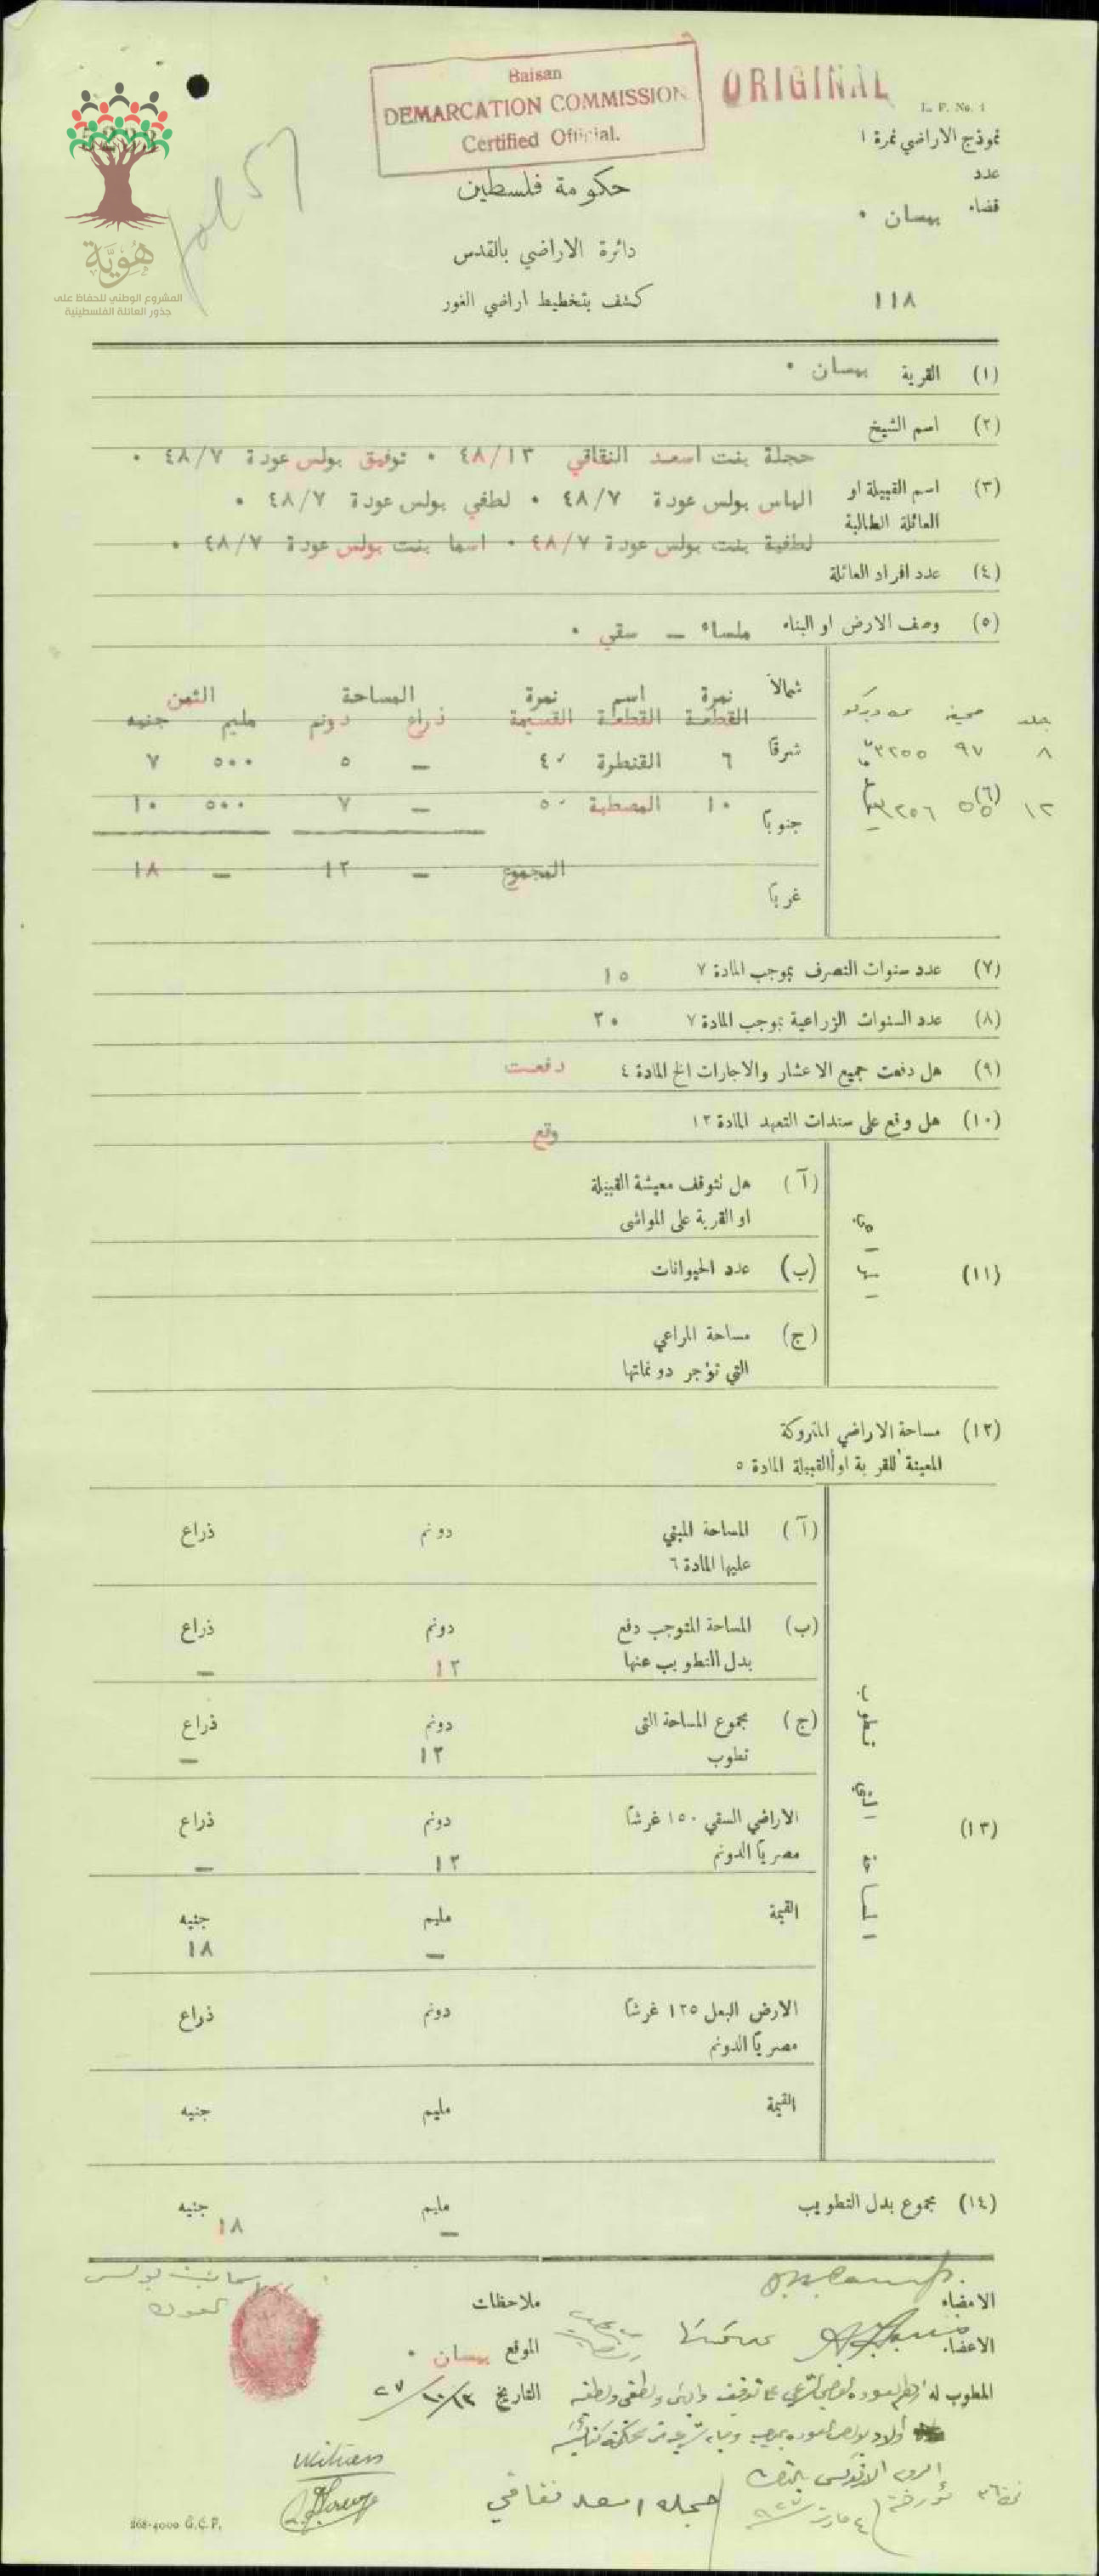 Baisan
DEMARCATION COMMISSION
Certified Official.
ORIGINAL
L. F. No. 1
نموذج الاراضي نمرة ١
عدد
قضاء بيسان ٠
هُوِيَّة
المشروع الوطني للحفاظ على
جذور العائلة الفلسطينية
fol 57
حكومة فلسطين
دائرة الاراضي بالقدس
كشف بتخطيط اراضي الغور
١١٨
(١) القرية بيسان ٠
(٢) اسم الشيخ
حجلة بنت اسعد النقاقي ٤٨/١٣ ٠ توفيق بولس عودة ٤٨/٧ ٠
(٣) اسم القبيلة او العائلة الطالبة
الياس بولس عودة ٤٨/٧ ٠ لطفي بولس عودة ٤٨/٧ ٠
لطفية بنت بولس عودة ٤٨/٧ ٠ اسما بنت بولس عودة ٤٨/٧ ٠
(٤) عدد افراد العائلة
(٥) وصف الارض او البناء ملساء – سقي ٠
(٦)
شمالاً
شرقاً
جنوباً
غرباً
نمرة القطعة اسم القطعة نمرة القسيمة المساحة ذراع دونم الثمن مليم جنيه
٦ القنطرة ٤٠ – ٥ ٥٠٠ ٧
١٠ المصطبة ٥٠ – ٧ ٥٠٠ ١٠
المجموع – ١٢ – ١٨
جلد صحيفة
٨ ٩٧ ٣٢٥٥
١٢ ٥٥ ٣٢٥٦
(٧) عدد سنوات التصرف بموجب المادة ٧ ١٥
(٨) عدد السنوات الزراعية بموجب المادة ٧ ٢٠
(٩) هل دفعت جميع الاعشار والاجارات الخ المادة ٤ دفعت
(١٠) هل وقع على سندات التعهد المادة ١٢ وقع
(١١)
(آ) هل تتوقف معيشة القبيلة
او القرية على المواشي
(ب) عدد الحيوانات
(ج) مساحة المراعي
التي تؤجر دونماتها
(١٢) مساحة الاراضي المتروكة
المعينة للقرية او القبيلة المادة ٥
(١٣)
(آ) المساحة المبني دونم ذراع
عليها المادة ٦
(ب) المساحة المتوجب دفع دونم ذراع
بدل التطويب عنها ١٢ –
(ج) مجموع المساحة التي دونم ذراع
تطوب ١٢ –
الاراضي السقي ١٥٠ غرشاً دونم ذراع
مصرياً الدونم ١٢ –
القيمة مليم جنيه
– ١٨
الارض البعل ١٢٥ غرشاً دونم ذراع
مصرياً الدونم
القيمة مليم جنيه
(١٤) مجموع بدل التطويب مليم جنيه
– ١٨
الامضاء
ملاحظات
الاعضاء
الموقع بيسان ٠
المطوب له
التاريخ
حجله اسعد نقاقي
268-4000 G.C.P.